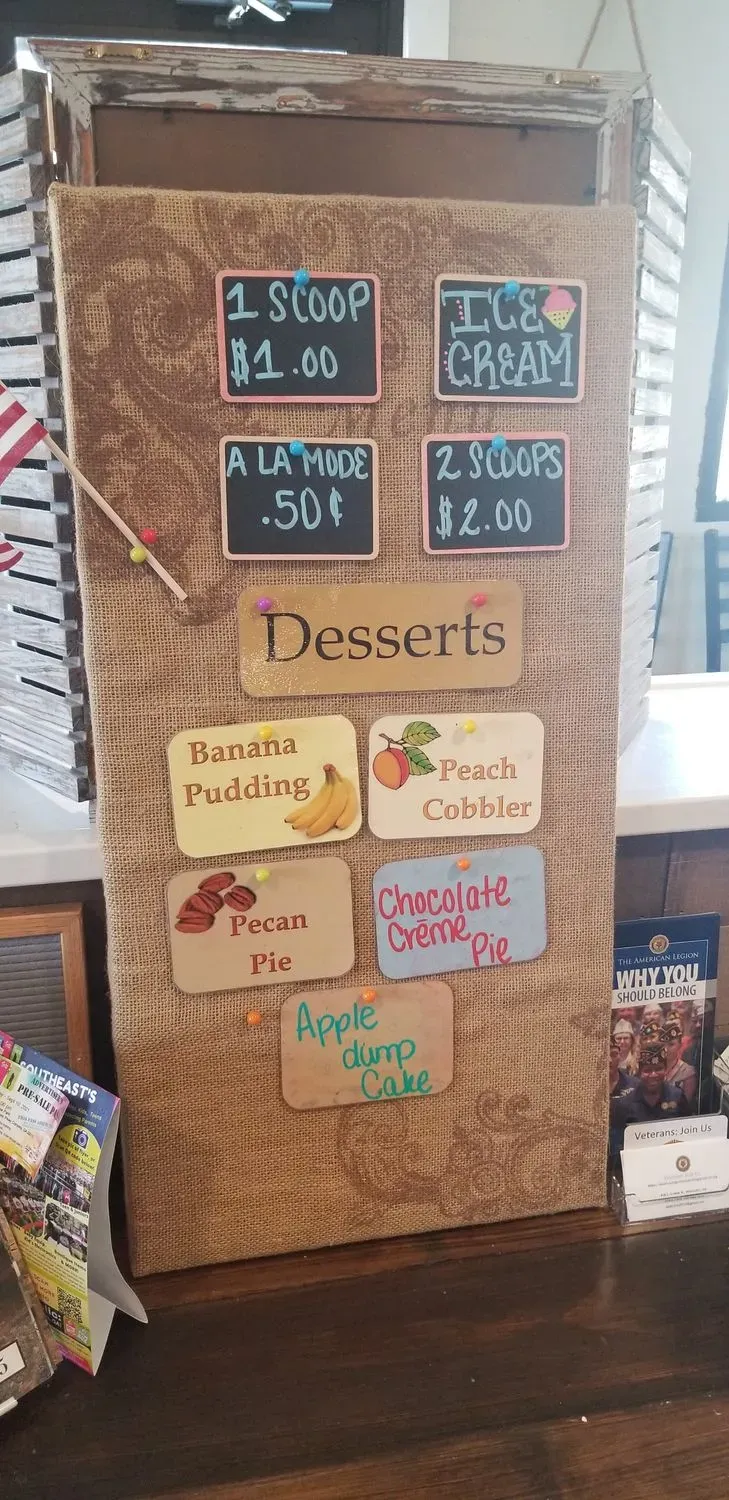 1 SCOOP
$1.00
ICE
CREAM
A LA MODE
.50¢
2 SCOOPS
$2.00
Desserts
Banana
Pudding
Peach
Cobbler
Pecan
Pie
Chocolate
Crēme
Pie
Apple
dump
Cake
THE AMERICAN LEGION
WHY YOU
SHOULD BELONG
Veterans: Join Us
SOUTHEAST'S
PRE-SALE
5